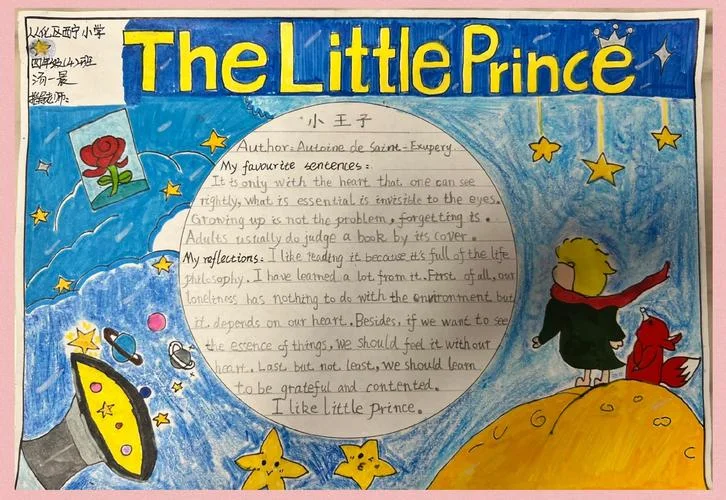 从化区西宁小学
四年级(4)班
汤一晨
老师:
The Little Prince
小王子
Author: Antoine de Saint-Exupery
My favourite sentences:
It is only with the heart that one can see
rightly, what is essential is invisible to the eyes.
Growing up is not the problem, forgetting is.
Adults usually do judge a book by its cover.
My reflections: I like reading it because it's full of the life
philosophy. I have learned a lot from it. First of all, our
loneliness has nothing to do with the environment but
it depends on our heart. Besides, if we want to see
the essence of things, we should feel it with our
heart. Last but not least, we should learn
to be grateful and contented.
I like little prince.